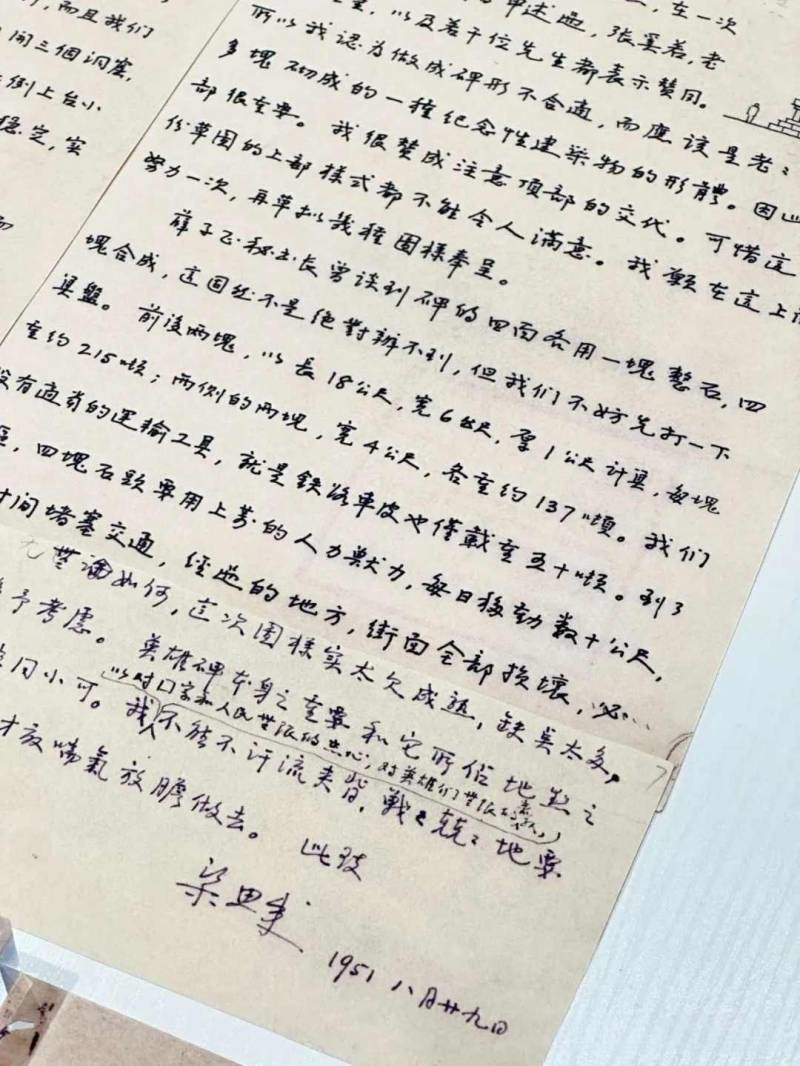 ，而且我们
间三個洞窟，
倒上台小
稳定，实
而
，在一次
申述過，張奚若，老
，以及若干位先生都表示赞同。
所以我認为做成碑形不合適，而應該是老：
多塊砌成的一種纪念性建築物的形體。因此
部很重要。我很赞成注意頂部的交代。可惜這
份草图的上部樣式都不能令人滿意。我願在這上
努力一次，再草拟幾種图樣奉呈。
薛子正秘书长曾谈到碑的四面各用一塊整石，四
塊合成，這固然不是绝對辦不到，但我们不妨先打一下
算盤。前後兩塊，以長18公尺，宽6公尺，厚1公尺计算，每塊
重约215吨；兩側的兩塊，宽4公尺，各重约137吨。我们
没有適当的運输工具，就是铁路車皮也僅載重五十吨。到了
，四塊石头要用上等的人力獸力，每日移動數十公尺，
时间堵塞交通，經过的地方，街面全部损壞，必…
无論如何，这次图樣实太欠成熟，缺点太多，
予考慮。英雄碑本身之重要和它所佔地点之
以对国家和人民無限的忠心，对英雄们無限的
同小可。我人不能不汗流夹背，戰:兢:地要
才放喘氣放膽做去。此致
梁思成
1951 八月廿九日